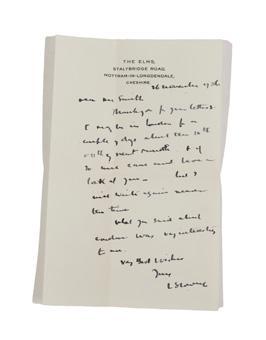 THE ELMS,
STALYBRIDGE ROAD,
MOTTRAM-IN-LONGDENDALE,
CHESHIRE
26 November 195
Dear Mr Smith
Thank you for your letter.
I may be in London for a
couple of days about the 10th
of next month & if
so will come and have a
look at you but I
will write again nearer
the time
What you said about
was very interesting
to me.
Very Best Wishes
Yours
L S Lowry